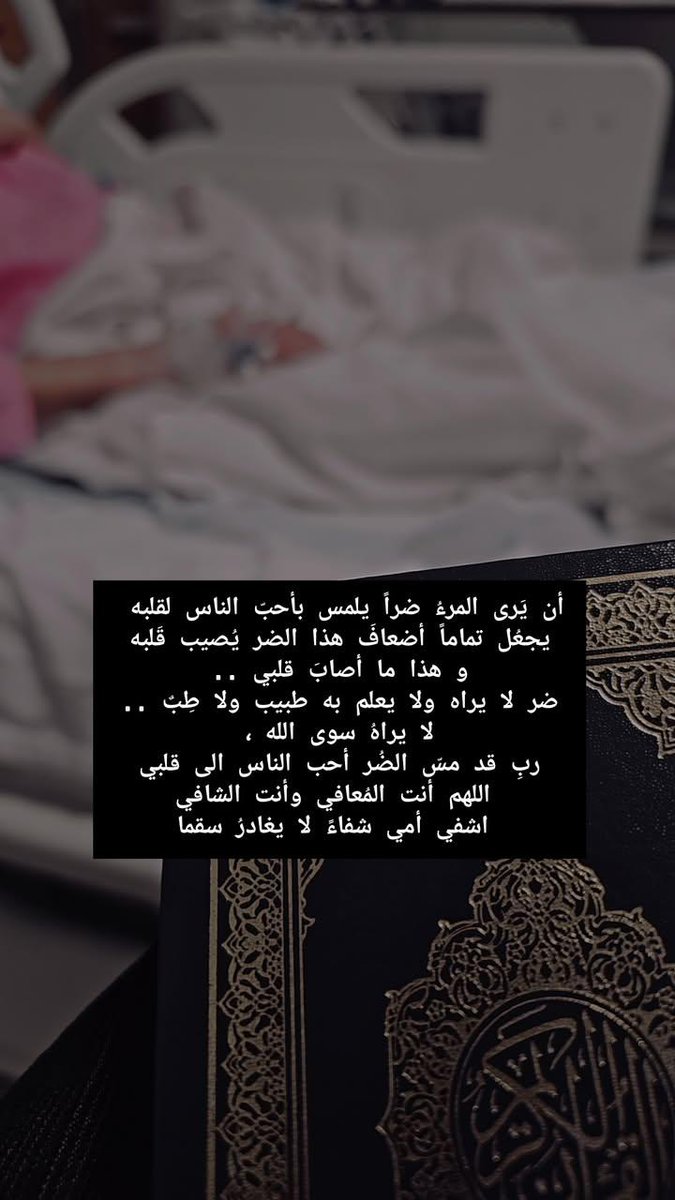 أن يَرى المرءُ ضراً يلمس بأحبَ الناس لقلبه
يجعَل تماماً أضعافَ هذا الضر يُصيب قَلبه
و هذا ما أصابَ قلبي ..
ضر لا يراه ولا يعلم به طبيب ولا طِبٌ ..
لا يراهُ سوى الله ،
ربِ قد مسّ الضُر أحب الناس الى قلبي
اللهم أنت المُعافي وأنت الشافي
اشفي أمي شفاءً لا يغادرُ سقما
القرآن الكريم